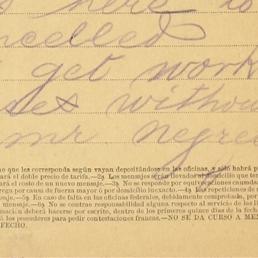 s here to
cancelled
get work
set withou
mr Negre
no que les corresponda según vayan depositándose en las oficinas, y sólo habrá p
ará el doble precio de tarifa.—2ª Los mensajes serán llevados al domicilio que ten
ará el costo de un nuevo mensaje.—3ª No se responde por equivocaciones causadas
rega por causa de fuerza mayor ó por domicilio inexacto.—4ª Las repeticiones de
mensaje.—5ª En caso de falta en las oficinas federales, debidamente comprobada, por
vo.—6ª No se contrae responsabilidad alguna respecto al servicio de las lí
mación deberá hacerse por escrito, dentro de los primeros quince días de la fech
ó las procedentes para pedir contestaciones francas.—NO SE DA CURSO A ME
FECHO.